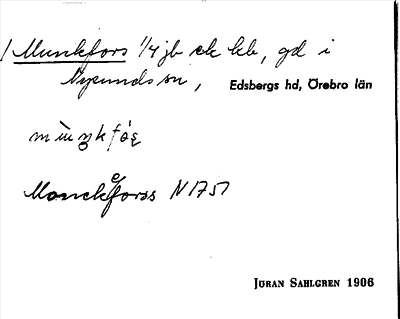 Munkfors 1/4 jb ck kb, gd i
Nysunds sn, Edsbergs hd, Örebro län
Monckeforss N 1751
JÖRAN SAHLGREN 1906